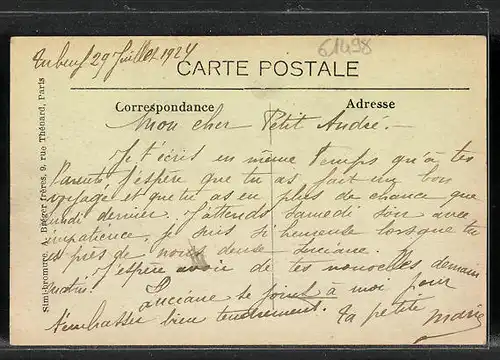 29 Juillet 1924
61498
CARTE POSTALE
Correspondance
Adresse
Simi-bromure A. Breger frères, 9, rue Thénard, Paris
Mon cher Petit André. -
Je t'écris en même temps qu'à tes
Parents J'espère que tu as fait un bon
voyage et que tu as eu plus de chance que
lundi dernier. J'attends samedi son avec
impatience, je suis si heureuse lorsque tu
es près de nous deux Luciane.
J'espère avoir de tes nouvelles demain
matin. Luciane se joint à moi pour
t'embrasser bien tendrement. ta petite Marie